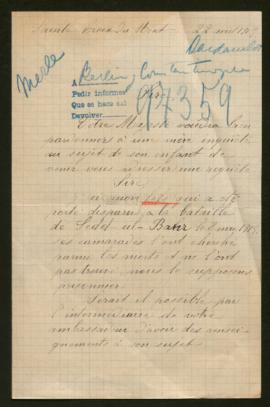 22 mai 19
Dardanelles
Merle
Berlin, Constantinopla
A
Pedir informes
Que se hace del
Devolver
97359
Sire
Votre Majesté voudra bien
pardonner à une mère inquiète
au sujet de son enfant de
venir vous adresser une requête
Sire
ai mon fils qui a été
porté disparu à la bataille
de Sedul-ul-Bahr le 8 mai 1915
ses camarades l'ont cherché
parmi les morts et ne l'ont
pas trouvé nous le supposons
prisonnier
Serait il possible par
l'intermédiaire de votre
ambassadeur d'avoir des rensei-
gnements à son sujet